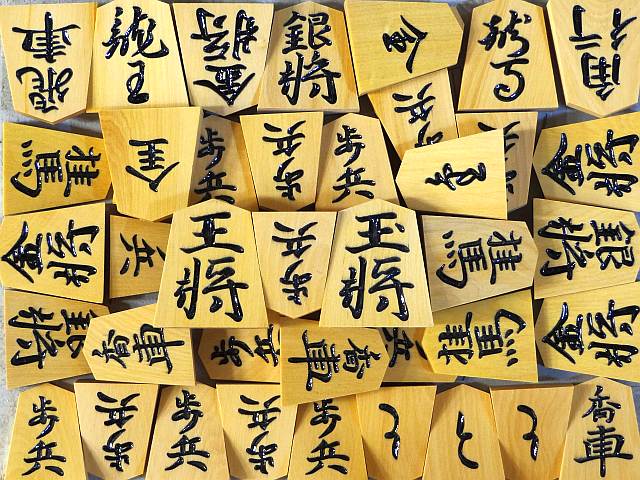 飛車
龍王
金将
銀将
龍馬
角行
桂馬
歩兵
歩兵
歩兵
歩兵
金将
金将
兵
王将
歩兵
玉将
桂馬
銀将
銀将
香車
歩兵
香車
兵
金将
歩兵
歩兵
歩兵
歩兵
歩兵
と
と
と
香車